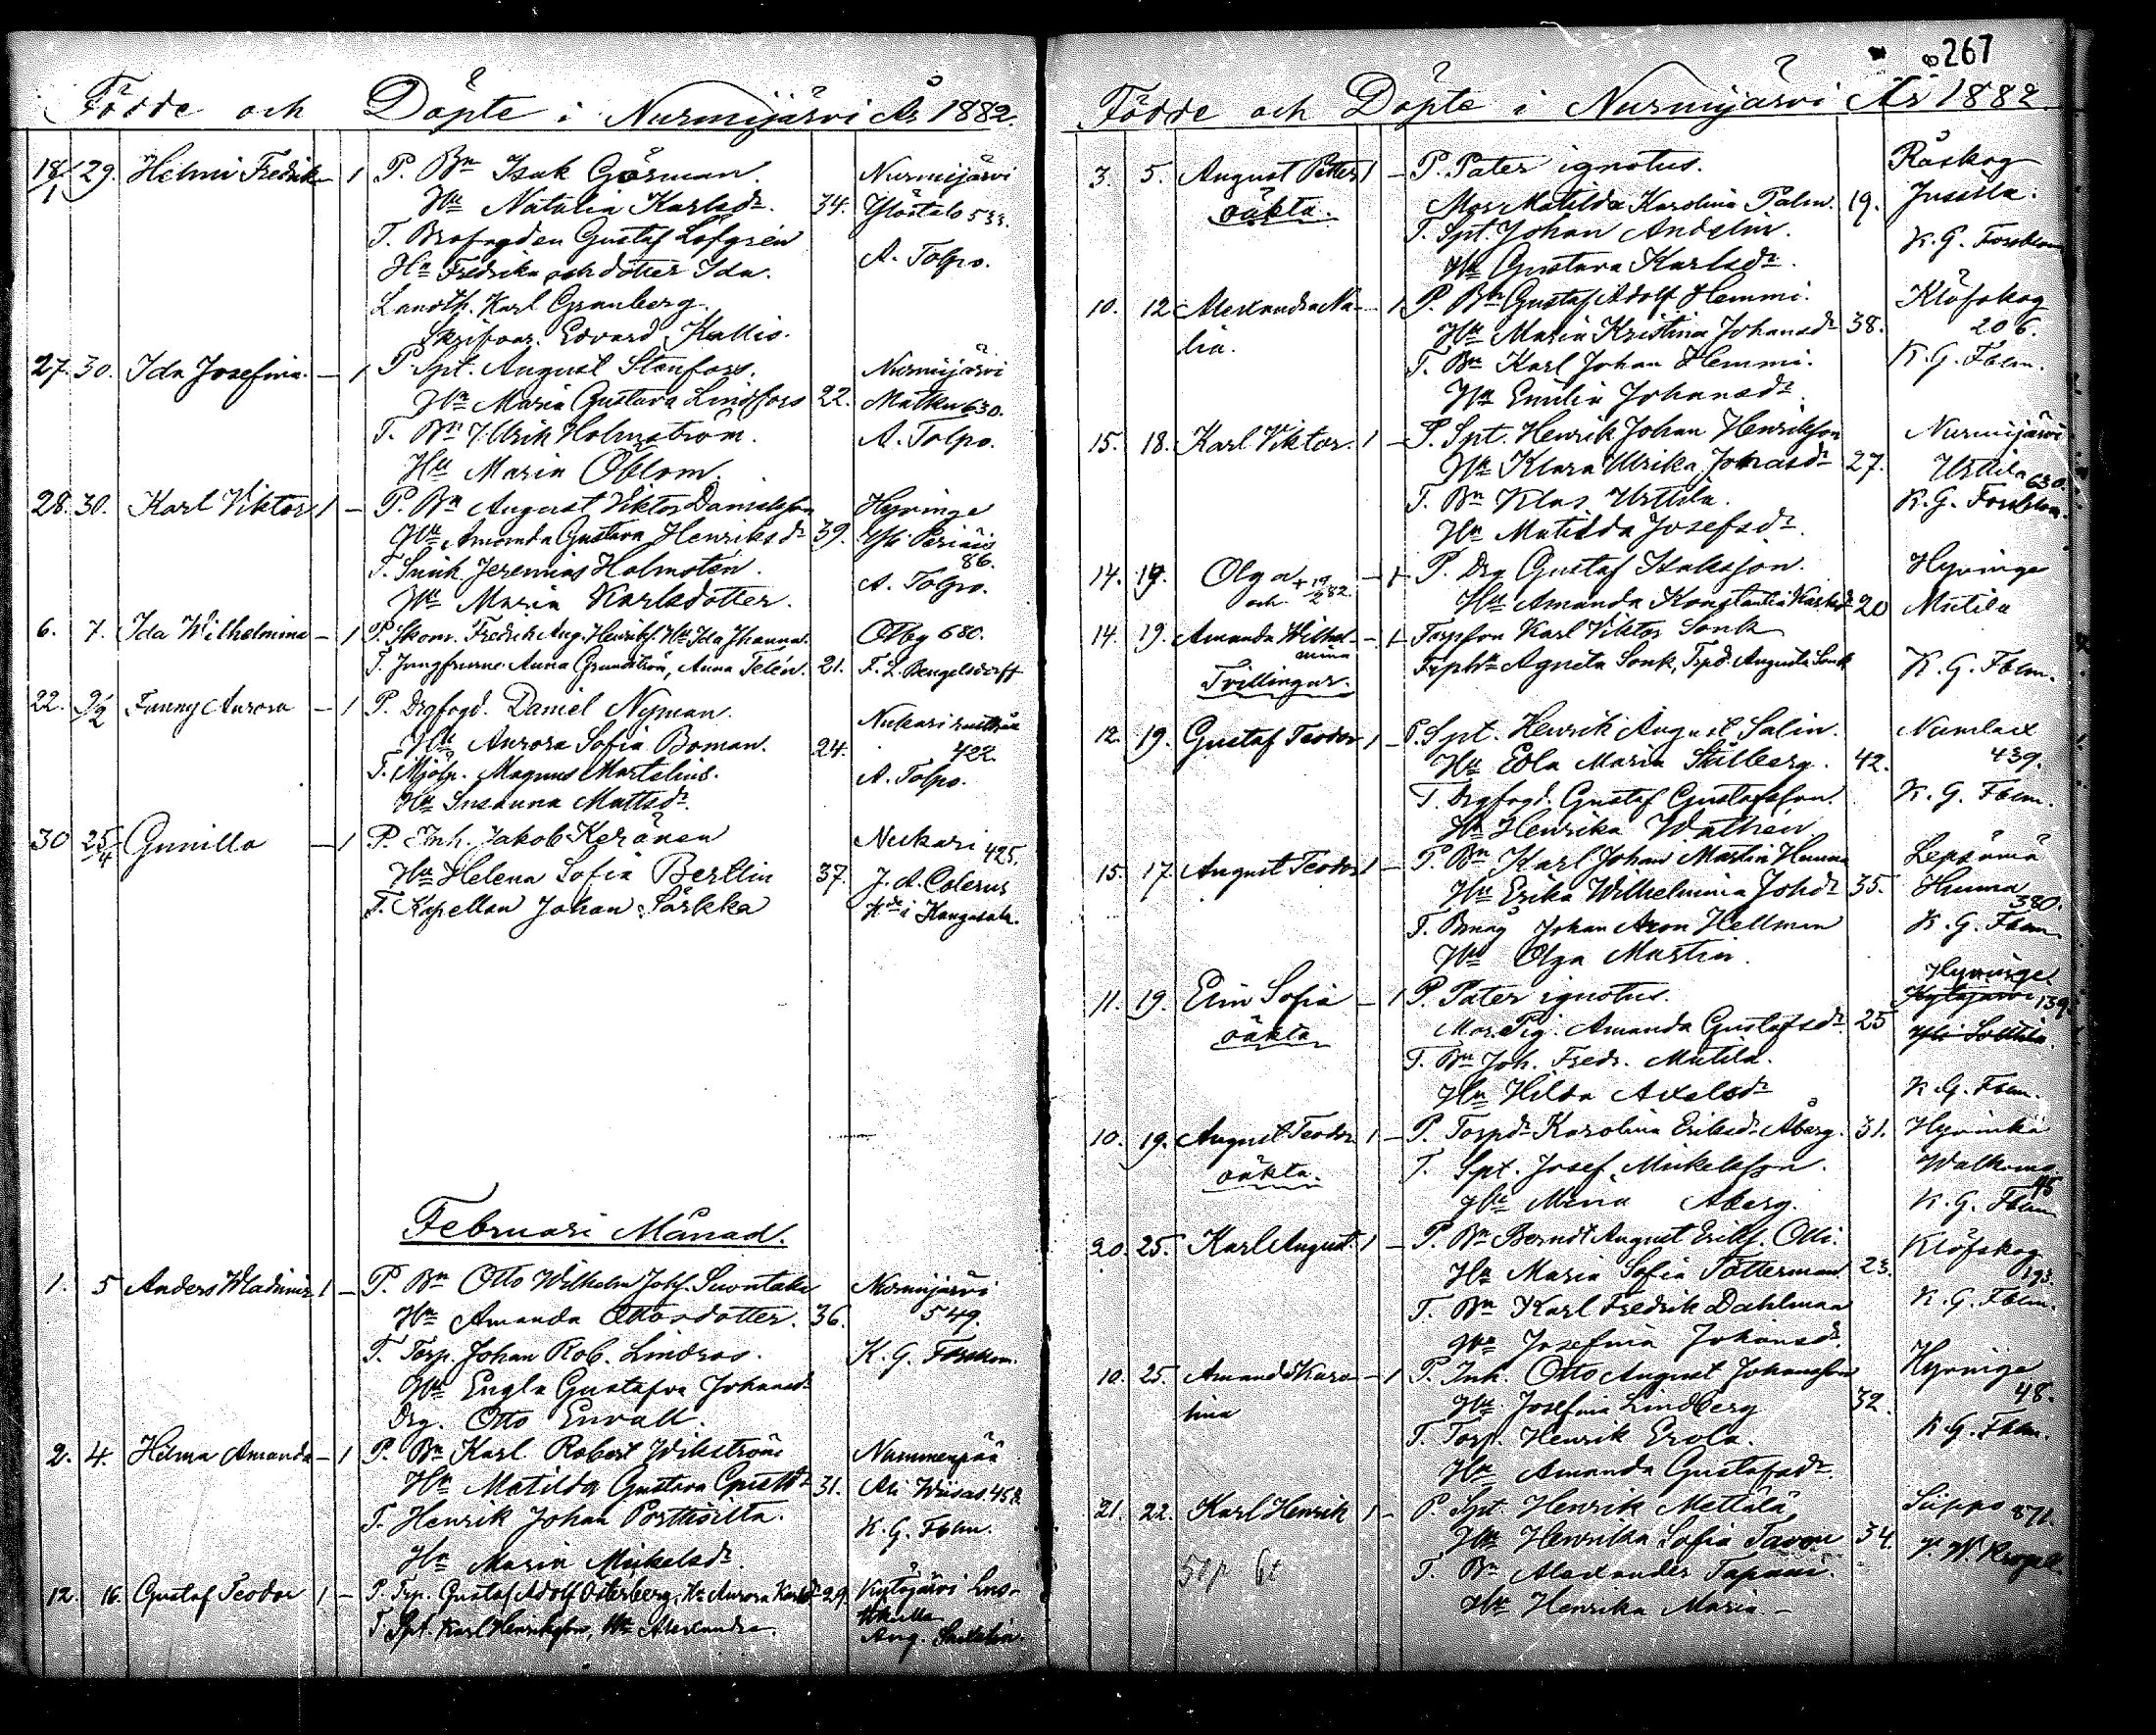 Födde och Döpte i Nurmijärvi År 1882.
18/1 29. Helmi Fredrik — 1 P. Bn Isak Görman. Nurmijärvi
Hu Natalia Karlsdr. 34. Ylöstalo 533.
T. Brofogden Gustaf Löfgrén
Hu Fredrika och dotter Ida. A. Tolpo.
Landth. Karl Granberg.
Skrifvar. Edvard Kallio.
27. 30. Ida Josefina. — 1 P. Spt. August Stenfors. Nurmijärvi
Hu Maria Gustava Lindfors 22. Matku 630.
T. Bn Ulrik Holmström. A. Tolpo.
Hu Maria Öblom.
28. 30. Karl Viktor 1 — P. Bn August Viktor Danielsson Hyvinge
Hu Amanda Gustava Henriksdr 39. Yli Periäis
T. Smk. Jeremias Holmsten. 86.
Hu Maria Karlsdotter. A. Tolpo.
6. 7. Ida Wilhelmina — 1 P. Skom. Fredrik Aug. Henriks. Hu Ida Johanna. Otby 680.
T. Jungfrurne Anna Grundström, Anna Telén. 21. F. L. Bengelsdorff
22. 9/2 Fanny Aurora — 1 P. Drgfogd. Daniel Nyman. Nukari
Hu Aurora Sofia Boman. 24. 422.
T. Mjölp. Magnus Martelius. A. Tolpo.
Hu Susanna Mattsdr.
30 25/4 Gunilla — 1 P. Inh. Jakob Keränen Nukari 425.
Hu Helena Sofia Berllin 37. J. A. Colerus
T. Kapellan Johan Särkka Kde i Kangasala.
Februari Månad.
1. 5 Anders Wladimir 1 — P. Bn Otto Wilhelm Johs. Suontaka Nurmijärvi
Hu Amanda Ottosdotter. 36. 549.
T. Torp. Johan Rob. Lindros. K. G. Forsblom.
Hu Engla Gustafva Johansdr
Drg. Otto Envall.
2. 4. Hilma Amanda — 1 P. Bn Karl Robert Wikström Nummenpää
Hu Matilda Gustava Gustdr 31. Ali Wiisas 458.
T. Henrik Johan Porthoilta. K. G. Fblm.
Hu Maria Mickelsdr.
12. 16. Gustaf Teodor 1 — P. Trp. Gustaf Adolf Österberg, Hu Aurora Karlsdr 29. Kytäjärvi
T. Spt. Karl Henriksson, Hu Alexandra. Aug.
267
Födde och Döpte i Nurmijärvi År 1882.
3. 5. August Petter 1 — P. Pater ignotus. Råskog
oäkta. Mor Matilda Karolina Palm. 19. Jussila.
T. Spt. Johan Andelin. K. G. Forsblom
Hu Gustava Karlsdr.
10. 12 Alexandra Na- — 1 P. Bn Gustaf Adolf Hemmi. Klöfskog
lia. Hu Maria Kristina Johansdr 38. 206.
T. Bn Karl Johan Hemmi. K. G. Fblm.
Hu Emilia Johansdr.
15. 18. Karl Viktor. 1 — P. Spt. Henrik Johan Henriksson Nurmijärvi
Hu Klara Ulrika Jonasdr 27. Uttila 630.
T. Bn Klas Uttila. K. G. Forsblom.
Hu Matilda Josefsdr.
14. 19. Olga + 19/2 82. — 1 P. Drg Gustaf Isaksson. Hyvinge
och Hu Amanda Konstantia Karlsdr 20 Mutila
14. 19. Amanda Wilhel- — 1 Torpfon Karl Viktor Sonk
mina Trphu Agneta Sonk, Trpd. Augusta Sonk K. G. Fblm.
Tvillingar.
12. 19. Gustaf Teodor 1 — P. Spt. Henrik August Salin. Numlax
Hu Edla Maria Stålberg. 42. 439.
T. Drgfogd. Gustaf Gustafsson. K. G. Fblm.
Hu Henrika Wathén
15. 17. August Teodor 1 — P. Bn Karl Johan Martin Hunna Lepsämä
Hu Erika Wilhelmina Johdr 35. Hunna 380.
T. Bmåg Johan Aron Hellman K. G. Fblm.
Hu Olga Martin.
11. 19. Elin Sofia — 1 P. Pater ignotus. Hyvinge
oäkta Mor. Pig. Amanda Gustafsdr. 25 Kytäjärvi 139.
T. Bn Joh. Fredr. Mutila. Yli Solttila.
Hu Hilda Axelsdr K. G. Fblm.
10. 19. August Teodor 1 — P. Torpdr Karolina Eriksdr Åberg. 31. Hyvinkä
oäkta. T. Spt. Josef Mickelsson.
Hu Mina Åberg. 45 K. G. Fblm
20. 25. Karl August. 1 — P. Bn Berndt August Eriks. Olli. Klöfskog
Hu Maria Sofia Tötterman 23. 193.
T. Bn Karl Fredrik Dahlman K. G. Fblm.
Hu Josefina Johansdr.
10. 25. Amanda Karo- — 1 P. Inh. Otto August Johansson Hyvinge
lina Hu Josefina Lindberg 32. 48.
T. Torp. Henrik Erola. K. G. Fblm.
Hu Amanda Gustafsdr.
21. 22. Karl Henrik 1 — P. Spt. Henrik Mettälä Siippo 871.
Hu Henrika Sofia Tavon 34.
T. Bn Alexander Tapani.
Hu Henrika Maria. —